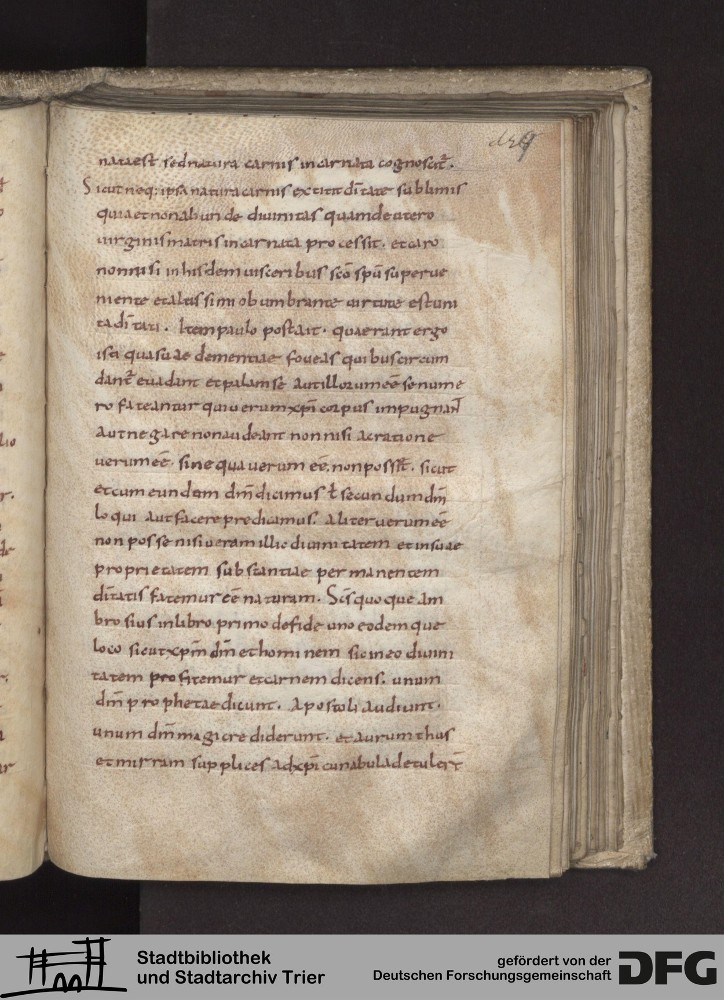 nata est sed natura carnis incarnata cognoscit̄.
Sicut neq: ipsa natura carnis extitit dītate sublimis
quia et non abunde diuinitas quam de utero
uirginis matris incarnata processit. et caro
non nisi in hisdem uisceribus scō spū superue
niente et altissimi obumbrante uirtute est uni
ta dītati. Item paulo post ait. quaerant ergo
isti quas uae dementiae foueas quibus circum
dant̄ euadant et palam se aut illorum eē se nume
ro fateantur qui uerum xpī corpus impugnant
aut negare non audeant non nisi a ratione
uerum eē. sine qua uerum eē. non possit̄. sicut
et cum eundem dm̄ dicimus ł secundum dm̄
loqui aut facere predicamus. aliter uerum eē
non posse nisi ueram illic diuinitatem et in suae
proprietatem substantiae permanentem
dītatis fatemur eē naturam. Sc̄s quoque am
brosius in libro primo de fide uno eodemque
loco sicut xpm̄ dm̄ et hominem sic in eo diuini
tatem profitemur et carnem dicens. unum
dm̄ prophetae dicunt. Apostoli audiunt.
unum dm̄ magi crediderunt. et aurum thus
et mirram supplices ad xpī cunabula detuler̄t
Stadtbibliothek
und Stadtarchiv Trier
gefördert von der
Deutschen Forschungsgemeinschaft
DFG